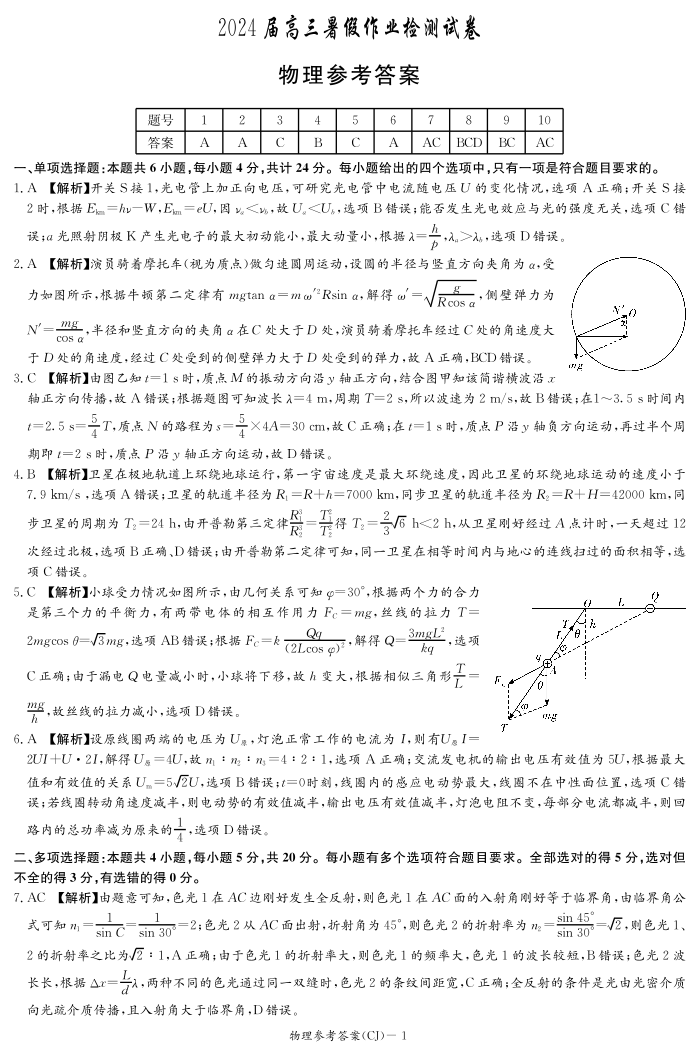 2024 届高三暑假作业检测试卷
物理参考答案
题号 1 2 3 4 5 6 7 8 9 10
答案 A A C B C A AC BCD BC AC
一、单项选择题:本题共 6 小题,每小题 4 分,共计 24 分。每小题给出的四个选项中,只有一项是符合题目要求的。
1. A 【解析】开关 S 接 1,光电管上加正向电压,可研究光电管中电流随电压 U 的变化情况,选项 A 正确;开关 S 接
2 时,根据 Eₖₘ=hν−W,Eₖₘ=eU,因 νₐ<ν_b,故 Uₐ<U_b,选项 B 错误;能否发生光电效应与光的强度无关,选项 C 错
误;a 光照射阴极 K 产生光电子的最大初动能小,最大动量小,根据 λ=h/p,λₐ>λ_b,选项 D 错误。
2. A 【解析】演员骑着摩托车(视为质点)做匀速圆周运动,设圆的半径与竖直方向夹角为 α,受
力如图所示,根据牛顿第二定律有 mgtan α=mω′²Rsin α,解得 ω′=√(g/(Rcos α)),侧壁弹力为
N′=mg/cos α,半径和竖直方向的夹角 α 在 C 处大于 D 处,演员骑着摩托车经过 C 处的角速度大
于 D 处的角速度,经过 C 处受到的侧壁弹力大于 D 处受到的弹力,故 A 正确,BCD 错误。
N′ O
α
mg
3. C 【解析】由图乙知 t=1 s 时,质点 M 的振动方向沿 y 轴正方向,结合图甲知该简谐横波沿 x
轴正方向传播,故 A 错误;根据题图可知波长 λ=4 m,周期 T=2 s,所以波速为 2 m/s,故 B 错误;在1～3.5 s 时间内
t=2.5 s=5/4 T,质点 N 的路程为 s=5/4×4A=30 cm,故 C 正确;在 t=1 s 时,质点 P 沿 y 轴负方向运动,再过半个周
期即 t=2 s 时,质点 P 沿 y 轴正方向运动,故 D 错误。
4. B 【解析】卫星在极地轨道上环绕地球运行,第一宇宙速度是最大环绕速度,因此卫星的环绕地球运动的速度小于
7.9 km/s ,选项 A 错误;卫星的轨道半径为 R₁=R+h=7000 km,同步卫星的轨道半径为 R₂=R+H=42000 km,同
步卫星的周期为 T₂=24 h,由开普勒第三定律R₁³/R₂³=T₁²/T₂²得 T₂=2/3√6 h<2 h,从卫星刚好经过 A 点计时,一天超过 12
次经过北极,选项 B 正确、D 错误;由开普勒第二定律可知,同一卫星在相等时间内与地心的连线扫过的面积相等,选
项 C 错误。
5. C 【解析】小球受力情况如图所示,由几何关系可知 φ=30°,根据两个力的合力
是第三个力的平衡力,有两带电体的相互作用力 F_C=mg,丝线的拉力 T=
2mgcos θ=√3mg,选项 AB 错误;根据 F_C=k Qq/(2Lcos φ)²,解得 Q=3mgL²/kq,选项
C 正确;由于漏电 Q 电量减小时,小球将下移,故 h 变大,根据相似三角形T/L=
mg/h,故丝线的拉力减小,选项 D 错误。
O L Q
T θ h
L
q φ
A
F θ
φ mg
T
6. A 【解析】设原线圈两端的电压为 U原,灯泡正常工作的电流为 I,则有U原 I=
2UI+U·2I,解得 U原=4U,故 n₁∶n₂∶n₃=4∶2∶1,选项 A 正确;交流发电机的输出电压有效值为 5U,根据最大
值和有效值的关系 Uₘ=5√2U,选项 B 错误;t=0时刻,线圈内的感应电动势最大,线圈不在中性面位置,选项 C 错
误;若线圈转动角速度减半,则电动势的有效值减半,输出电压有效值减半,灯泡电阻不变,每部分电流都减半,则回
路内的总功率减为原来的1/4,选项 D 错误。
二、多项选择题:本题共 4 小题,每小题 5 分,共 20 分。每小题有多个选项符合题目要求。全部选对的得 5 分,选对但
不全的得 3 分,有选错的得 0 分。
7. AC 【解析】由题意可知,色光 1 在 AC 边刚好发生全反射,则色光 1 在 AC 面的入射角刚好等于临界角,由临界角公
式可知 n₁=1/sin C=1/sin 30°=2;色光 2 从 AC 面出射,折射角为 45°,则色光 2 的折射率为 n₂=sin 45°/sin 30°=√2,则色光 1、
2 的折射率之比为√2∶1,A 正确;由于色光 1 的折射率大,则色光 1 的频率大,色光 1 的波长较短,B 错误;色光 2 波
长长,根据 Δx=L/d λ,两种不同的色光通过同一双缝时,色光 2 的条纹间距宽,C 正确;全反射的条件是光由光密介质
向光疏介质传播,且入射角大于临界角,D 错误。
物理参考答案(CJ)－ 1